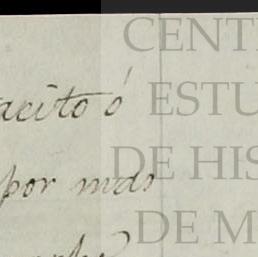 acito ó
por mas
CENT
ESTU
DE HIS
DE M